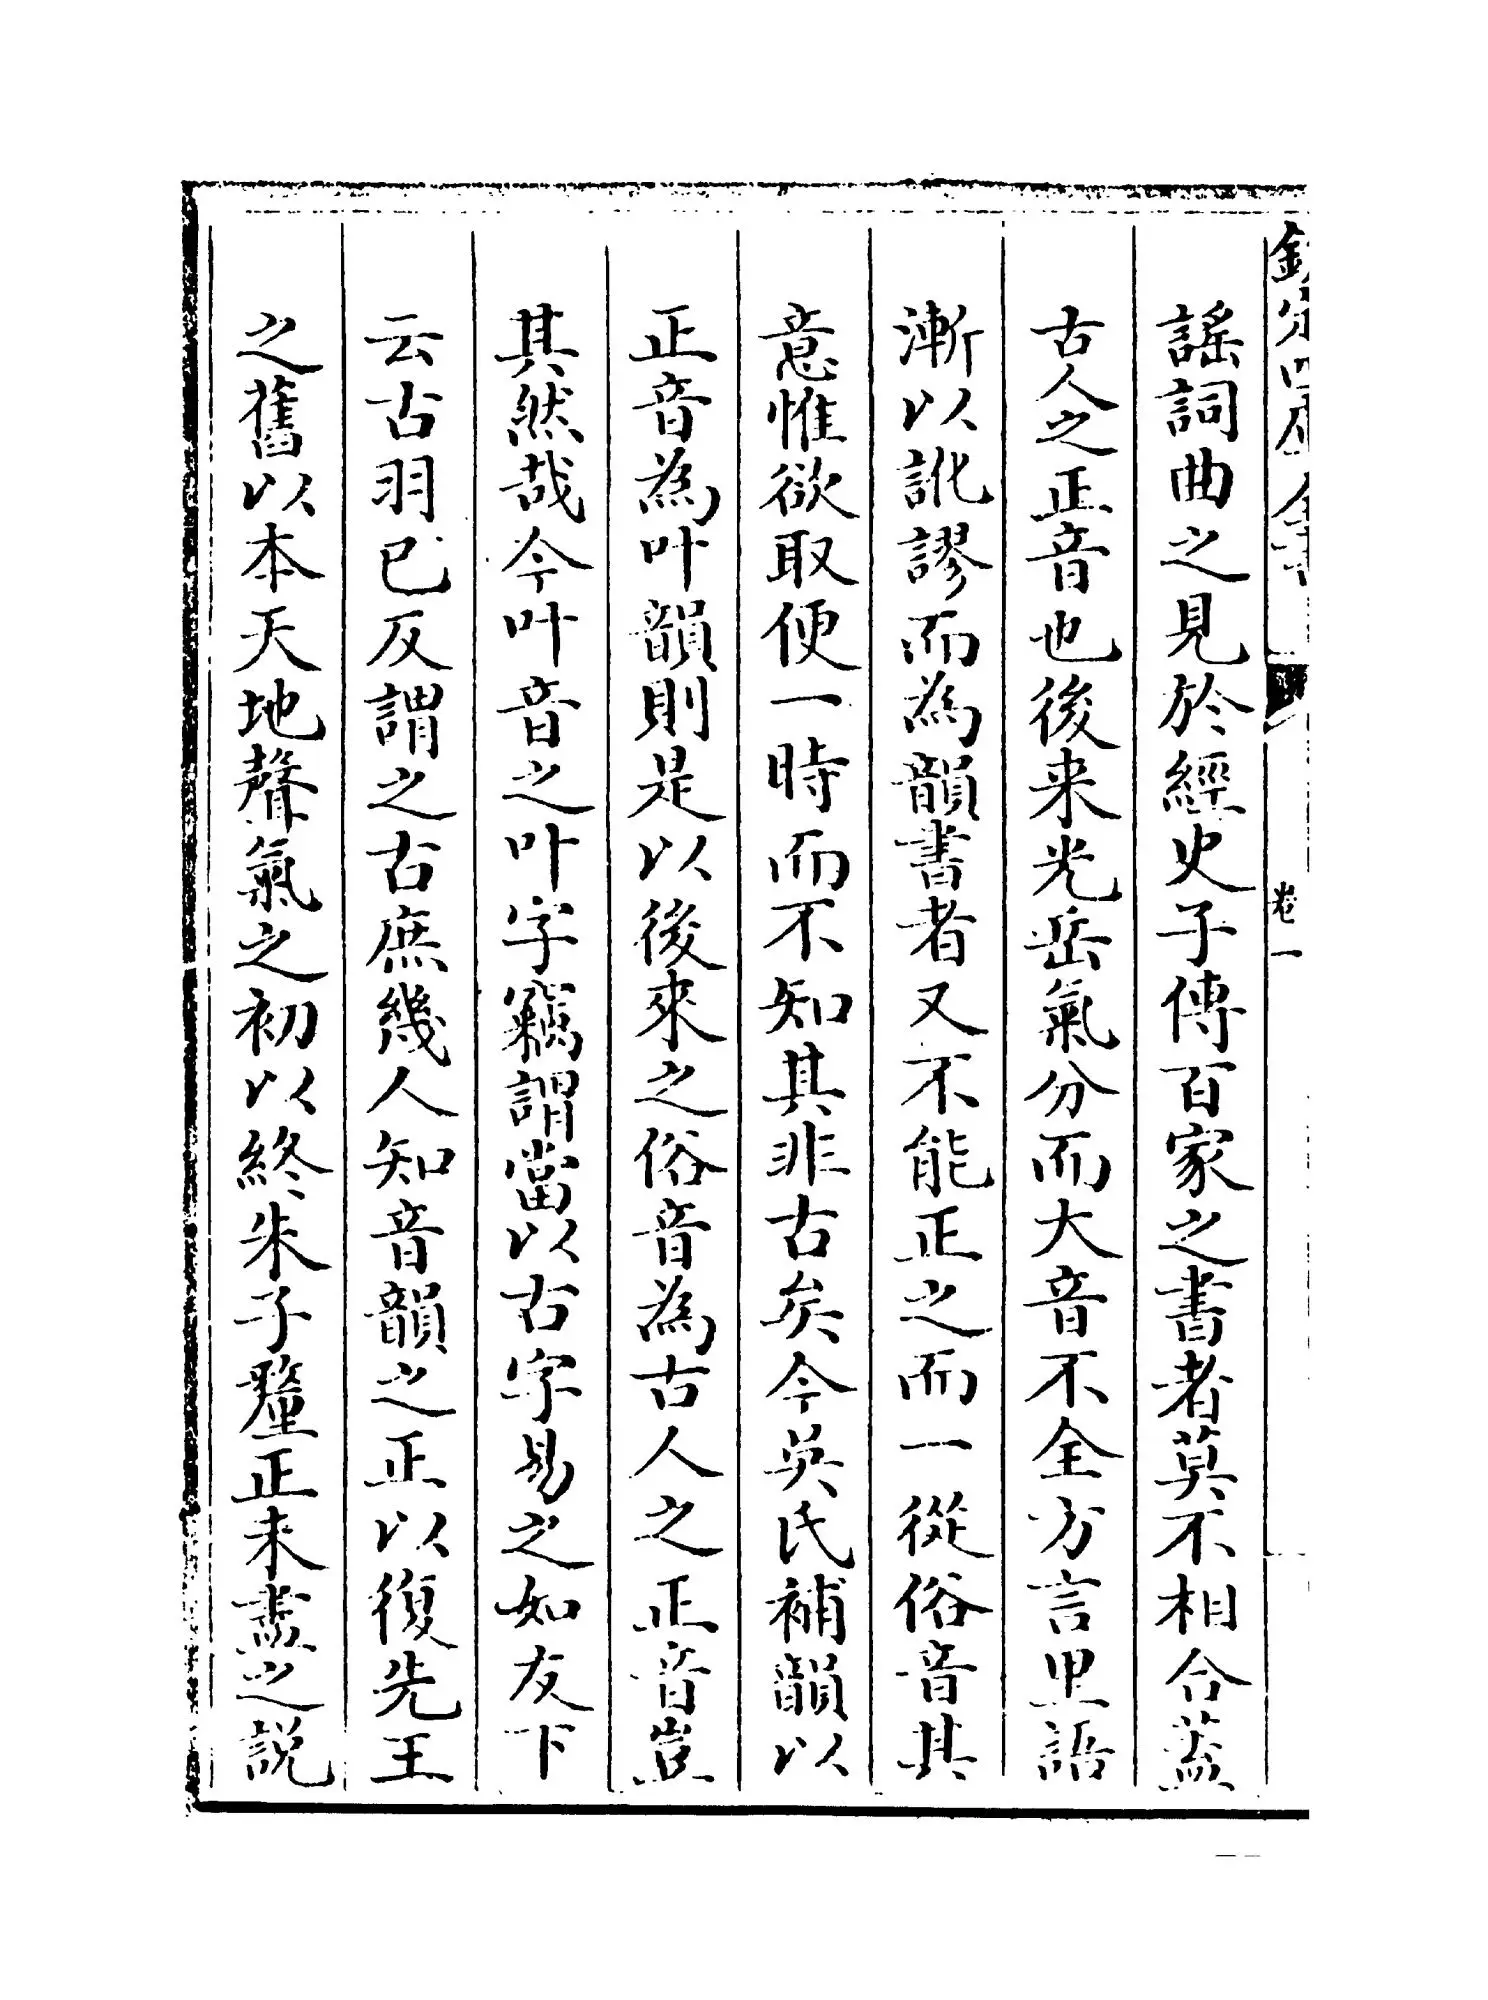 欽定四庫全書
卷一
謡詞曲之見於經史子傳百家之書者莫不相合蓋
古人之正音也後来光岳氣分而大音不全方言里語
漸以訛謬而為韻書者又不能正之而一從俗音其
意惟欲取便一時而不知其非古矣今吳氏補韻以
正音為叶韻則是以後來之俗音為古人之正音豈
其然哉今叶音之叶字竊謂當以古字易之如友下
云古羽已反謂之古庶幾人知音韻之正以復先王
之舊以本天地聲氣之初以終朱子釐正未盡之說